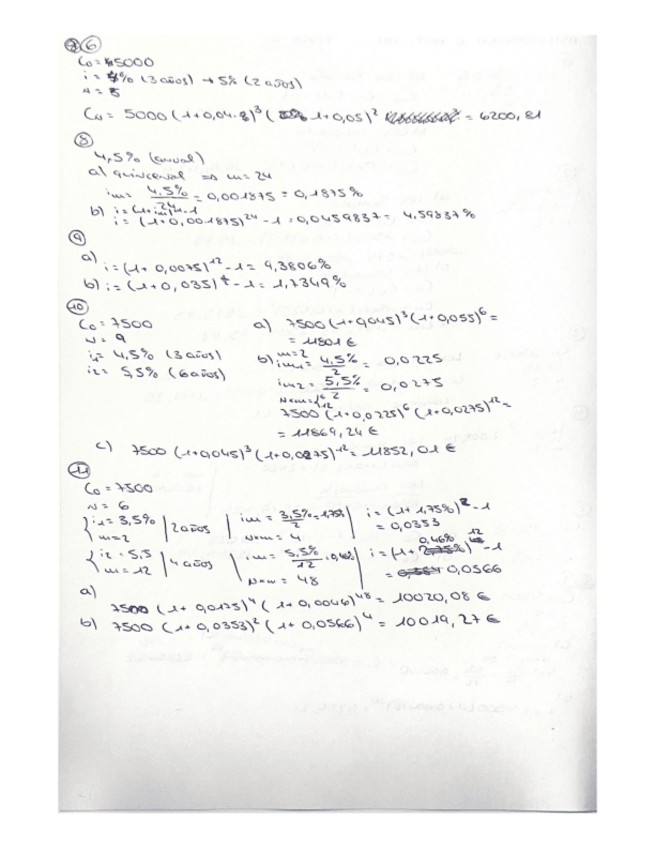 6
C₀ = 5000
i = 4% (3 años) → 5% (2 años)
n = 5
C₀ = 5000 (1+0,04)³ ( 1+0,05)² = 6200,81
8
4,5% (anual)
a) quincenal ⇒ m = 24
im = 4,5%/24 = 0,001875 = 0,1875%
b) i = (1+im)ᵐ-1
i = (1+0,001875)²⁴ - 1 = 0,0459837 = 4,59837%
9
a) i = (1+ 0,0075)¹² - 1 = 9,3806%
b) i = (1+0,035) - 1 = 1,7349%
10
C₀ = 7500
n = 9
i₁ = 4,5% (3 años)
i₂ = 5,5% (6 años)
a) 7500 (1+0,045)³ (1+0,055)⁶ =
= 11801 €
b) m = 2
im₁ = 4,5%/2 = 0,0225
im₂ = 5,5%/2 = 0,0275
7500 (1+0,0225)⁶ (1+0,0275)¹² =
= 11869,24 €
c) 7500 (1+0,045)³ (1+0,0275)¹² = 11852,01 €
11
C₀ = 7500
n = 6
i₁ = 3,5%
m = 2
2 años
im = 3,5%/2 = 1,75%
n×m = 4
i = (1+ 1,75%)² - 1
= 0,0353
i₂ = 5,5
m = 12
4 años
im = 5,5%/12 = 0,46%
n×m = 48
i = (1+ 0,46%)¹² - 1
= 0,0566
a)
7500 (1+ 0,0175)⁴ (1+ 0,0046)⁴⁸ = 10020,08 €
b) 7500 (1+ 0,0353)² (1+ 0,0566)⁴ = 10019,27 €